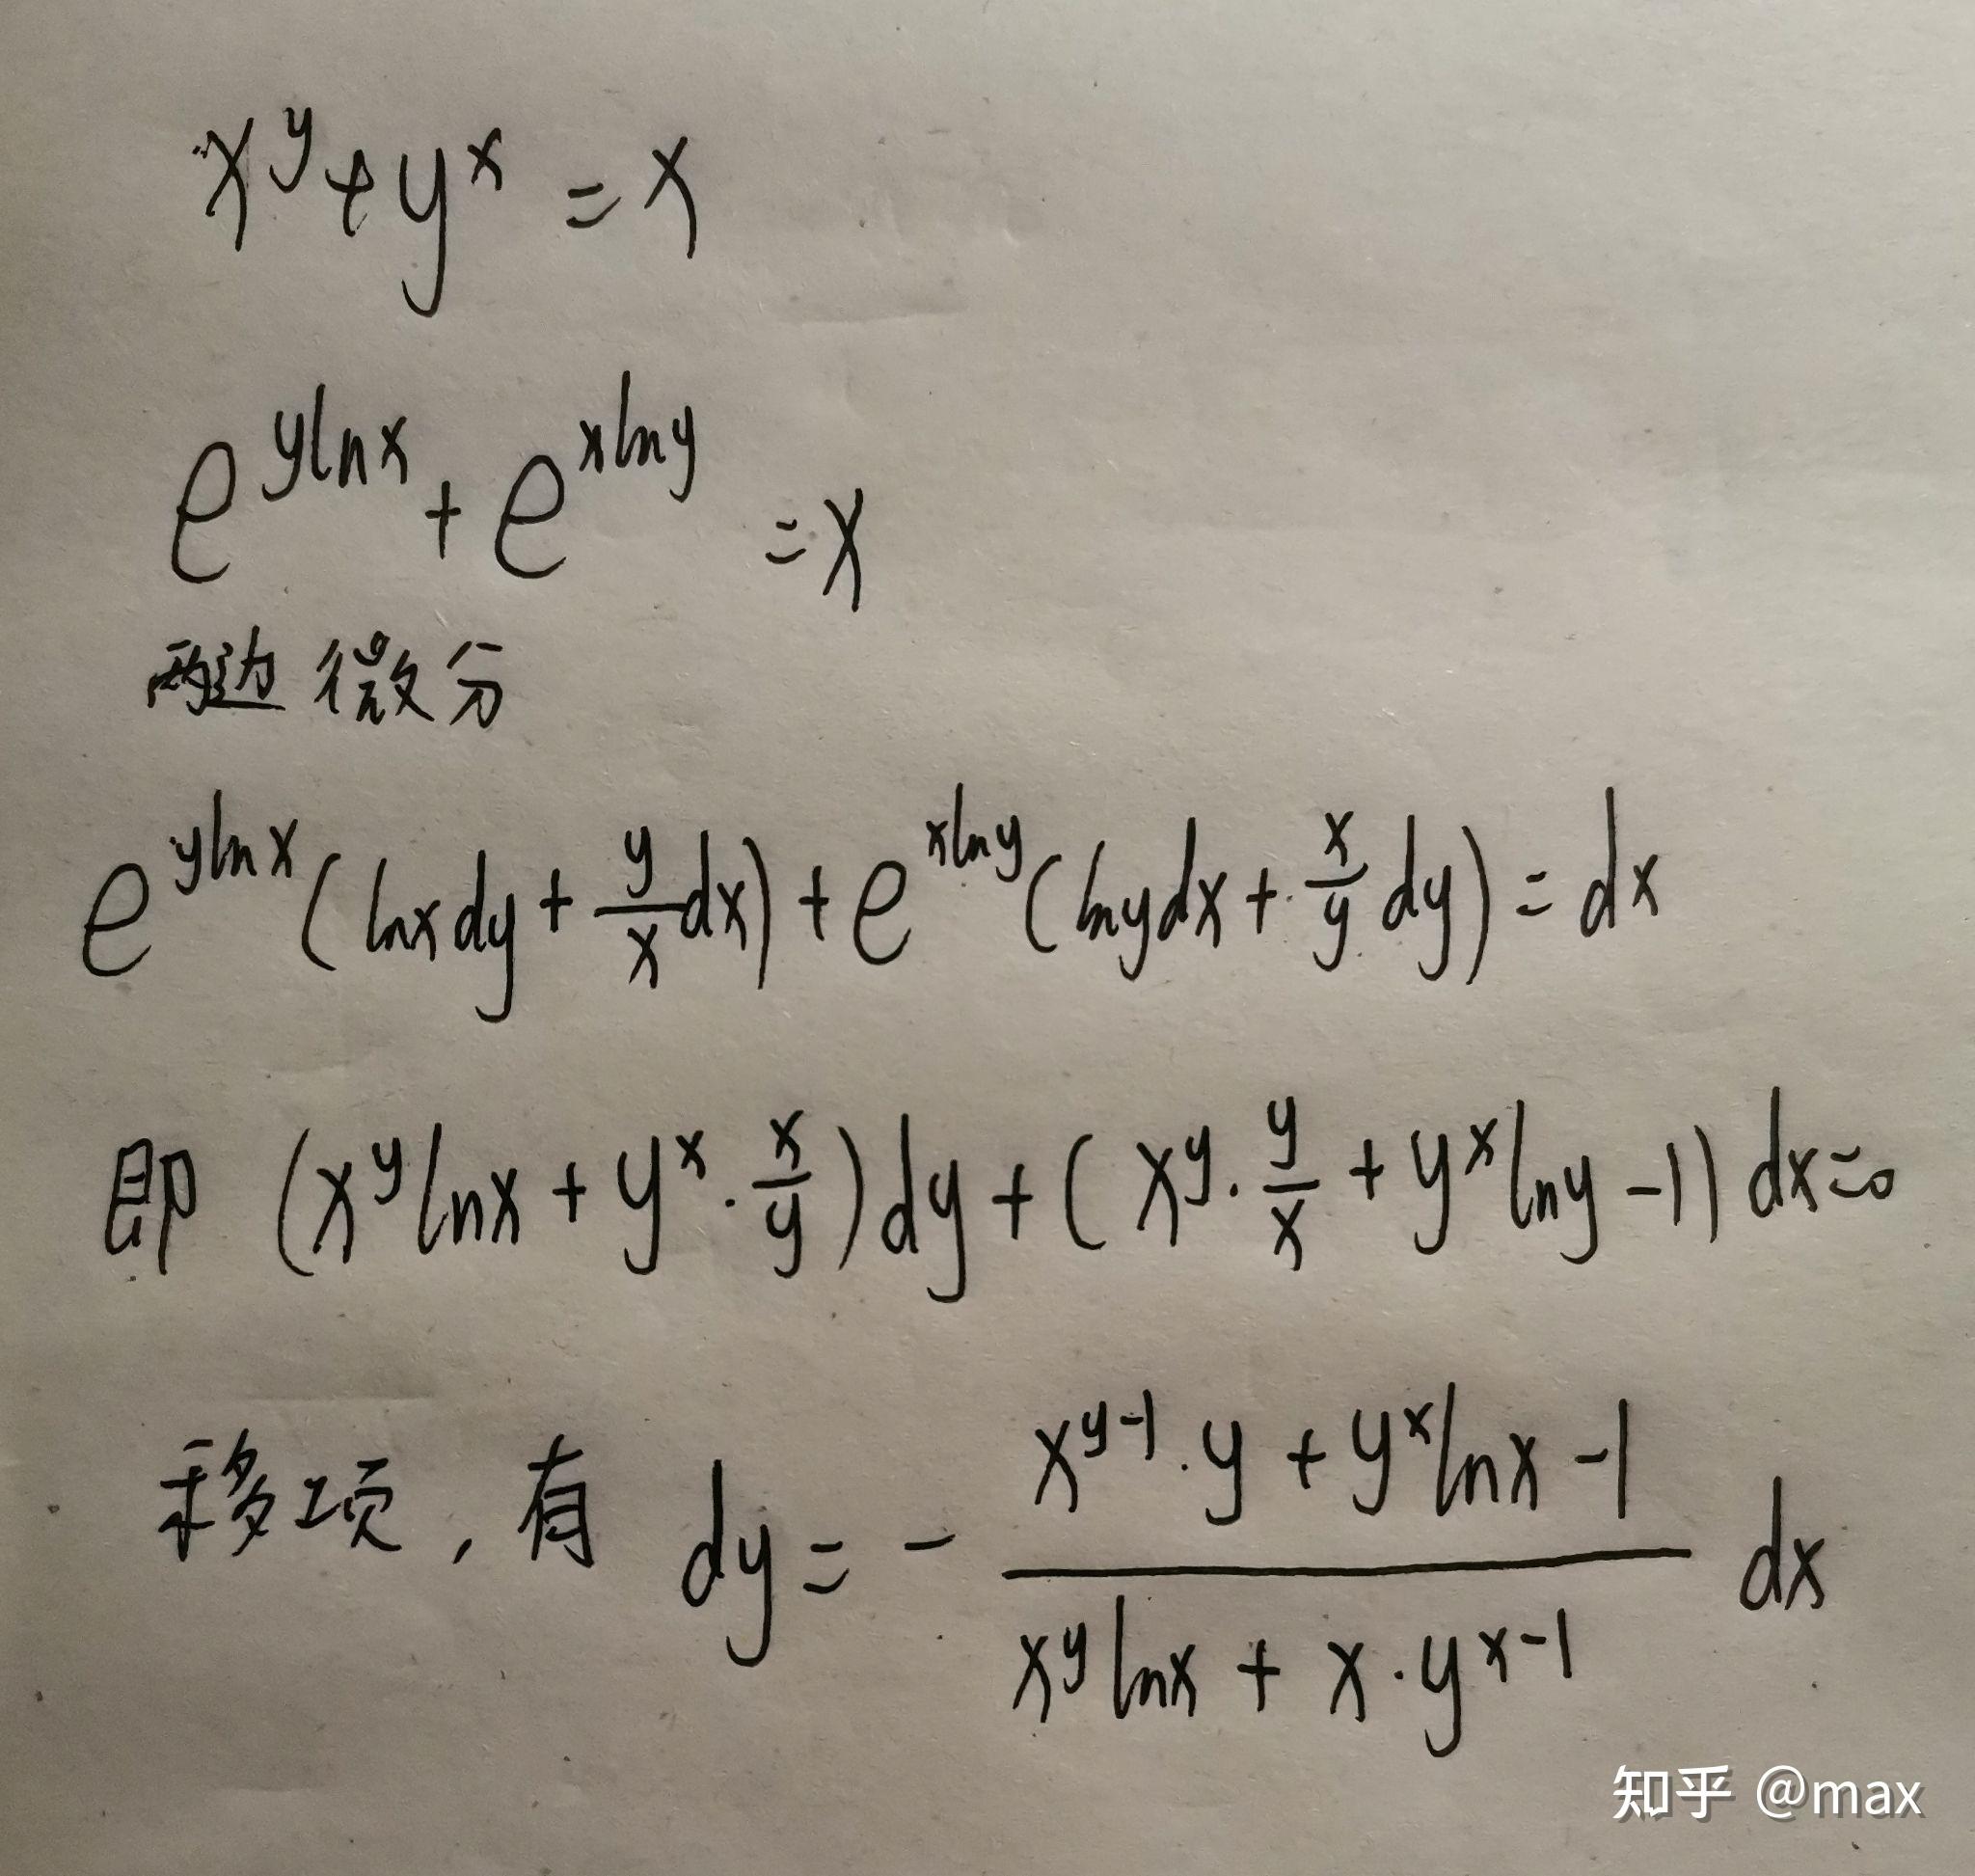 x^y + y^x = x
e^{y ln x} + e^{x ln y} = x
两边微分
e^{y ln x}(ln x dy + \frac{y}{x} dx) + e^{x ln y}(ln y dx + \frac{x}{y} dy) = dx
即 (x^y ln x + y^x · \frac{x}{y}) dy + (x^y · \frac{y}{x} + y^x ln y - 1) dx = 0
移项，有 dy = - \frac{x^{y-1} · y + y^x ln x - 1}{x^y ln x + x · y^{x-1}} dx
知乎 @max